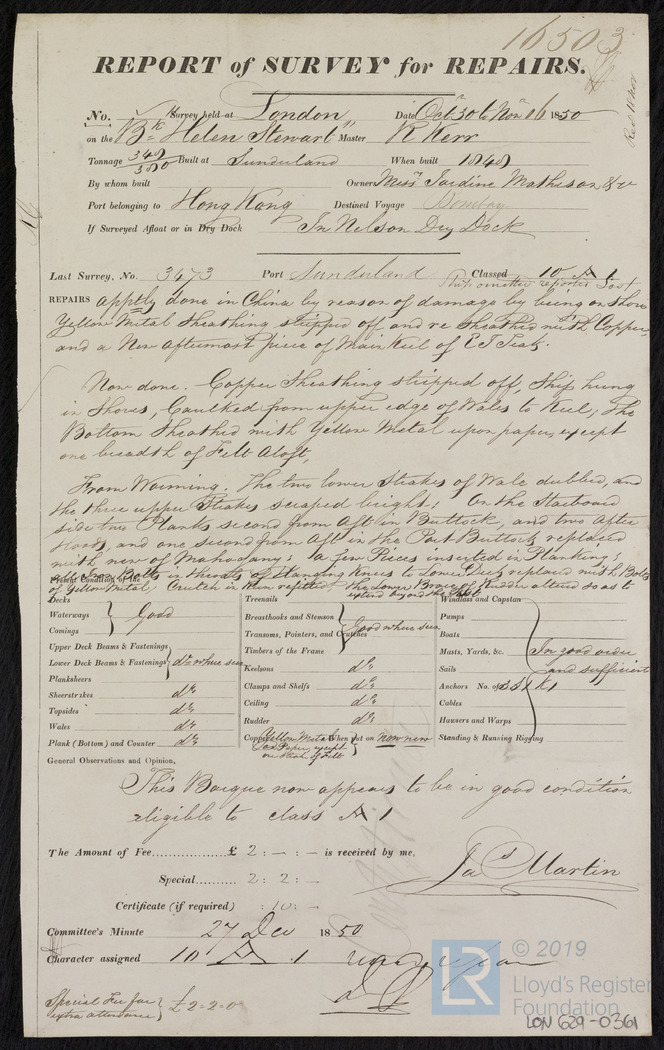 16503
REPORT of SURVEY for REPAIRS.
No. Survey held at London Date Octr 30 to Novr 16 1850
on the Bk "Helen Stewart" Master R Kerr
Tonnage 349/380 Built at Sunderland When built 1849
By whom built Owners Messrs Jardine Matheson & Co
Port belonging to Hong Kong Destined Voyage Bombay
If Surveyed Afloat or in Dry Dock In Nelson Dry Dock
Last Survey, No. 3673 Port Sunderland Classed 10 A 1
omitted
REPAIRS done in China by reason of damage by being on shore
Yellow Metal Sheathing stripped off and re sheathed with Copper,
and a New aftermost piece of Main Keel of E I Teak.
Now done. Copper Sheathing stripped off, Ship hung
in Shores, Caulked from upper edge of Wales to Keel, The
Bottom Sheathed with Yellow Metal upon paper, except
one breadth of Felt Aloft,
From Worming. The two lower Strakes of Wale dubbed, and
the three upper Strakes scraped bright; On the Starboard
side two Planks second from Aft in Buttock, and two After
Hoods, and one second from Aft in the Port Buttock replaced
with new of Mahogany; a few Pieces inserted in Planking;
a few Bolts in throats of Hanging Knees to Lower Deck replaced with Bolts
of Yellow Metal, Crutch in Run refitted The lower Brace of Rudder altered so as to
extend beyond the
Present Condition of the
Decks
Waterways } Good
Comings
Upper Deck Beams & Fastenings
Lower Deck Beams & Fastenings } do where seen
Planksheers
Sheerstrakes do
Topsides do
Wales do
Plank (Bottom) and Counter do
Treenails
Breasthooks and Stemson
Transoms, Pointers, and Crutches } Good where seen
Timbers of the Frame
Keelsons do
Clamps and Shelfs do
Ceiling do
Rudder do
Copper Yellow Metal When put on Now new
on Paper except
one Strak of Felt
Windlass and Capstan
Pumps
Boats
Masts, Yards, &c. In good order
Sails and sufficient
Anchors No. of 3 S 1 K 1
Cables
Hawsers and Warps
Standing & Running Rigging
General Observations and Opinion,
This Barque now appears to be in good condition
eligible to class A 1
The Amount of Fee.................£ 2 : – : – is received by me,
Special.......... 2 : 2 : –
Jas Martin
Certificate (if required) : 10 : –
Committee's Minute 27 Dec 1850
Character assigned 10 A 1
Special Fee for
extra attendance } £2-2-0
© 2019
LR
Lloyd's Register
Foundation
LON 629-0361